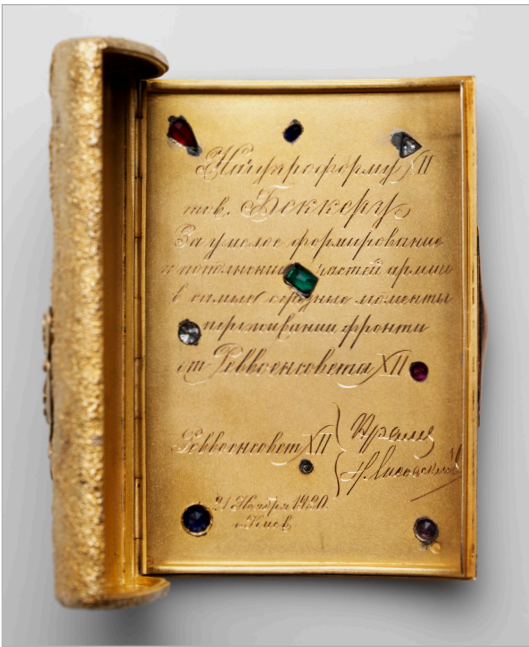 Начупроформу XII
тов. Беккеру
За умелое формирование
и пополнение частей армии
в самые трудные моменты
переживании фронта
от Реввоенсовета XII
Реввоенсовет XII
21 Ноября 1920.
г. Киев